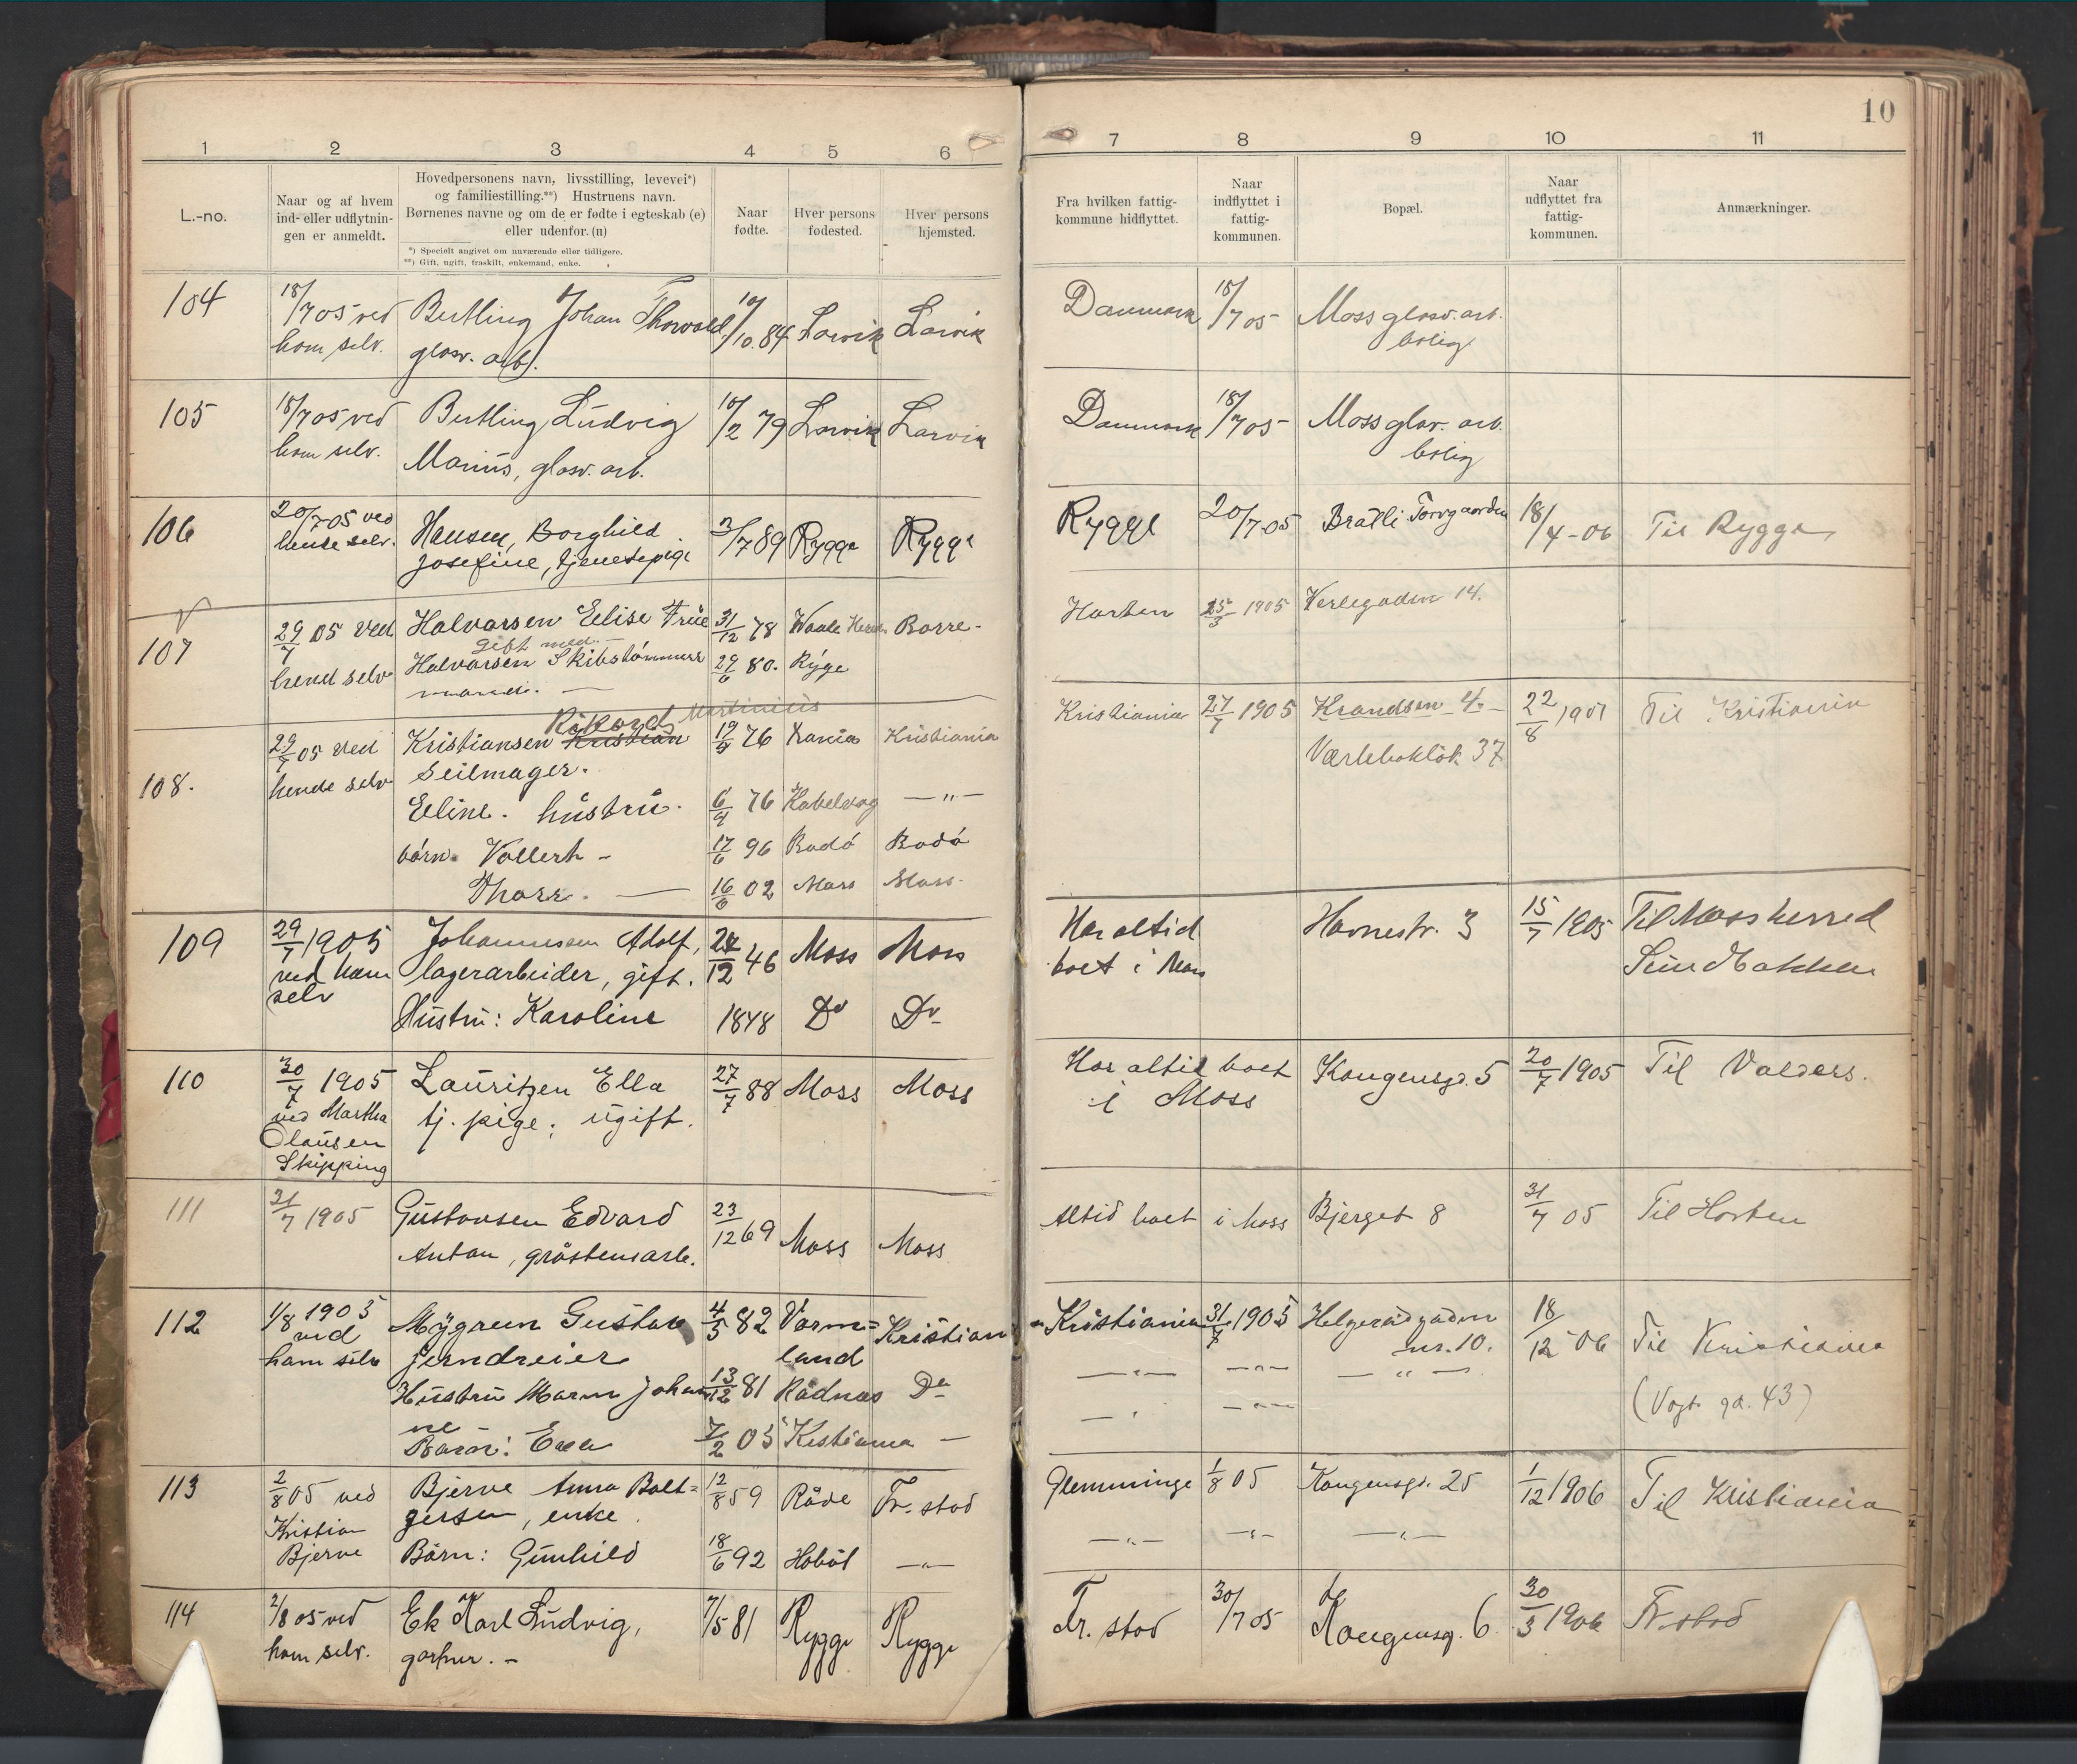 10
1 2 3 4 5 6 7 8 9 10 11
L.-no.
Naar og af hvem
ind- eller udflytnin-
gen er anmeldt.
Hovedpersonens navn, livsstilling, levevei*)
og familiestilling.**) Hustruens navn.
Børnenes navne og om de er fødte i egteskab (e)
eller udenfor. (u)
*) Specielt angivet om nuværende eller tidligere.
**) Gift, ugift, fraskilt, enkemand, enke.
Naar
fødte.
Hver persons
fødested.
Hver persons
hjemsted.
Fra hvilken fattig-
kommune hidflyttet.
Naar
indflyttet i
fattig-
kommunen.
Bopæl.
Naar
udflyttet fra
fattig-
kommunen.
Anmærkninger.
104 18/7 05 ved Johan Thorvald 10/10.84 Larvik Larvik Danmark 18/7 05 Moss glasv. arb.
ham selv. glasv. arb. bolig
105 18/7 05 ved Ludvig 10/2 79 Larvik Larvik Danmark 18/7 05 Moss glasv. arb.
ham selv. Marius, glasv. arb. bolig
106 20/7-05 ved Hansen, Borghild 3/7 89 Rygge Rygge Rygge 20/7-05 Bratli Torvgaarden 18/4-06 Til Rygge
hende selv. Josefine, tjenestepige
107 29/7 05 ved Halvorsen Elise Frue 31/12 78 Borre - Horten 25/3 1905 Verlegaden 14.
gift med. -
hend selv Halvorsen Skibstømmer 29/6 80. Ryge
mand. -
Rikard Martinius
108. 29/7 05 ved Kristiansen Kristian 19/9 76 Kristiania Kristiania 27/7 1905 Krandsen 4. 22/8 1907 Til Kristiania
hende selv Seilmager. 37
Eline. hustru. 6/9 76 Kabelvag —"—
børn. Vollert - 17/6 96 Bodø Bodø
Thorr. — 16/6 02 Moss Moss
109 29/7 1905 Johannesen Adolf, 24/12 46 Moss Moss Har altid Havnestr. 3 15/7 1905 Til Moss herred
ved ham lagerarbeider, gift. boet i Moss Sundbakken
selv
Hustru: Karoline 1848 Do Do
110 30/7 1905 Lauritzen Ella 27/7 88 Moss Moss Har altid boet Kongensgd. 5 20/7 1905 Til Valders.
ved Martha tj. pige; ugift. i Moss
Olausen
Skipping
111 31/7 1905 Gustavsen Edvard 23/12 69 Moss Moss Altid boet i Moss Bjerget 8 31/7 05 Til Horten
Anton, gråstensarb.
112 1/8 1905 Gustav 4/5 82 Verm= Kristian= Kristiania 31/7 1905 Helgerødgaden 18/12-06 Til Kristiania
ved jerndreier land nr. 10.
ham selv Hustru Johan 13/12 81 Do —"— —"— —"— (Vogts gd. 43)
ne
Barn: Eva 7/2 05 Kristiania — —"— —"—
113 2/8 05 ved Bjerve Anna Bolt= 12/8 59 Råde Fr. stad Glemminge 1/8 05 Kongensgd. 25 1/12 1906 Til Kristiania
Kristian gersen, enke.
Bjerve Børn: Gunhild 18/6 92 Hobøl —"— —"— —"— —"—
114 2/8 05 ved Ek Karl Ludvig, 7/5 81 Rygge Rygge Fr. stad 30/7 05 Kongensg. 6 30/3 1906 Fr. stad
ham selv. gartner. -